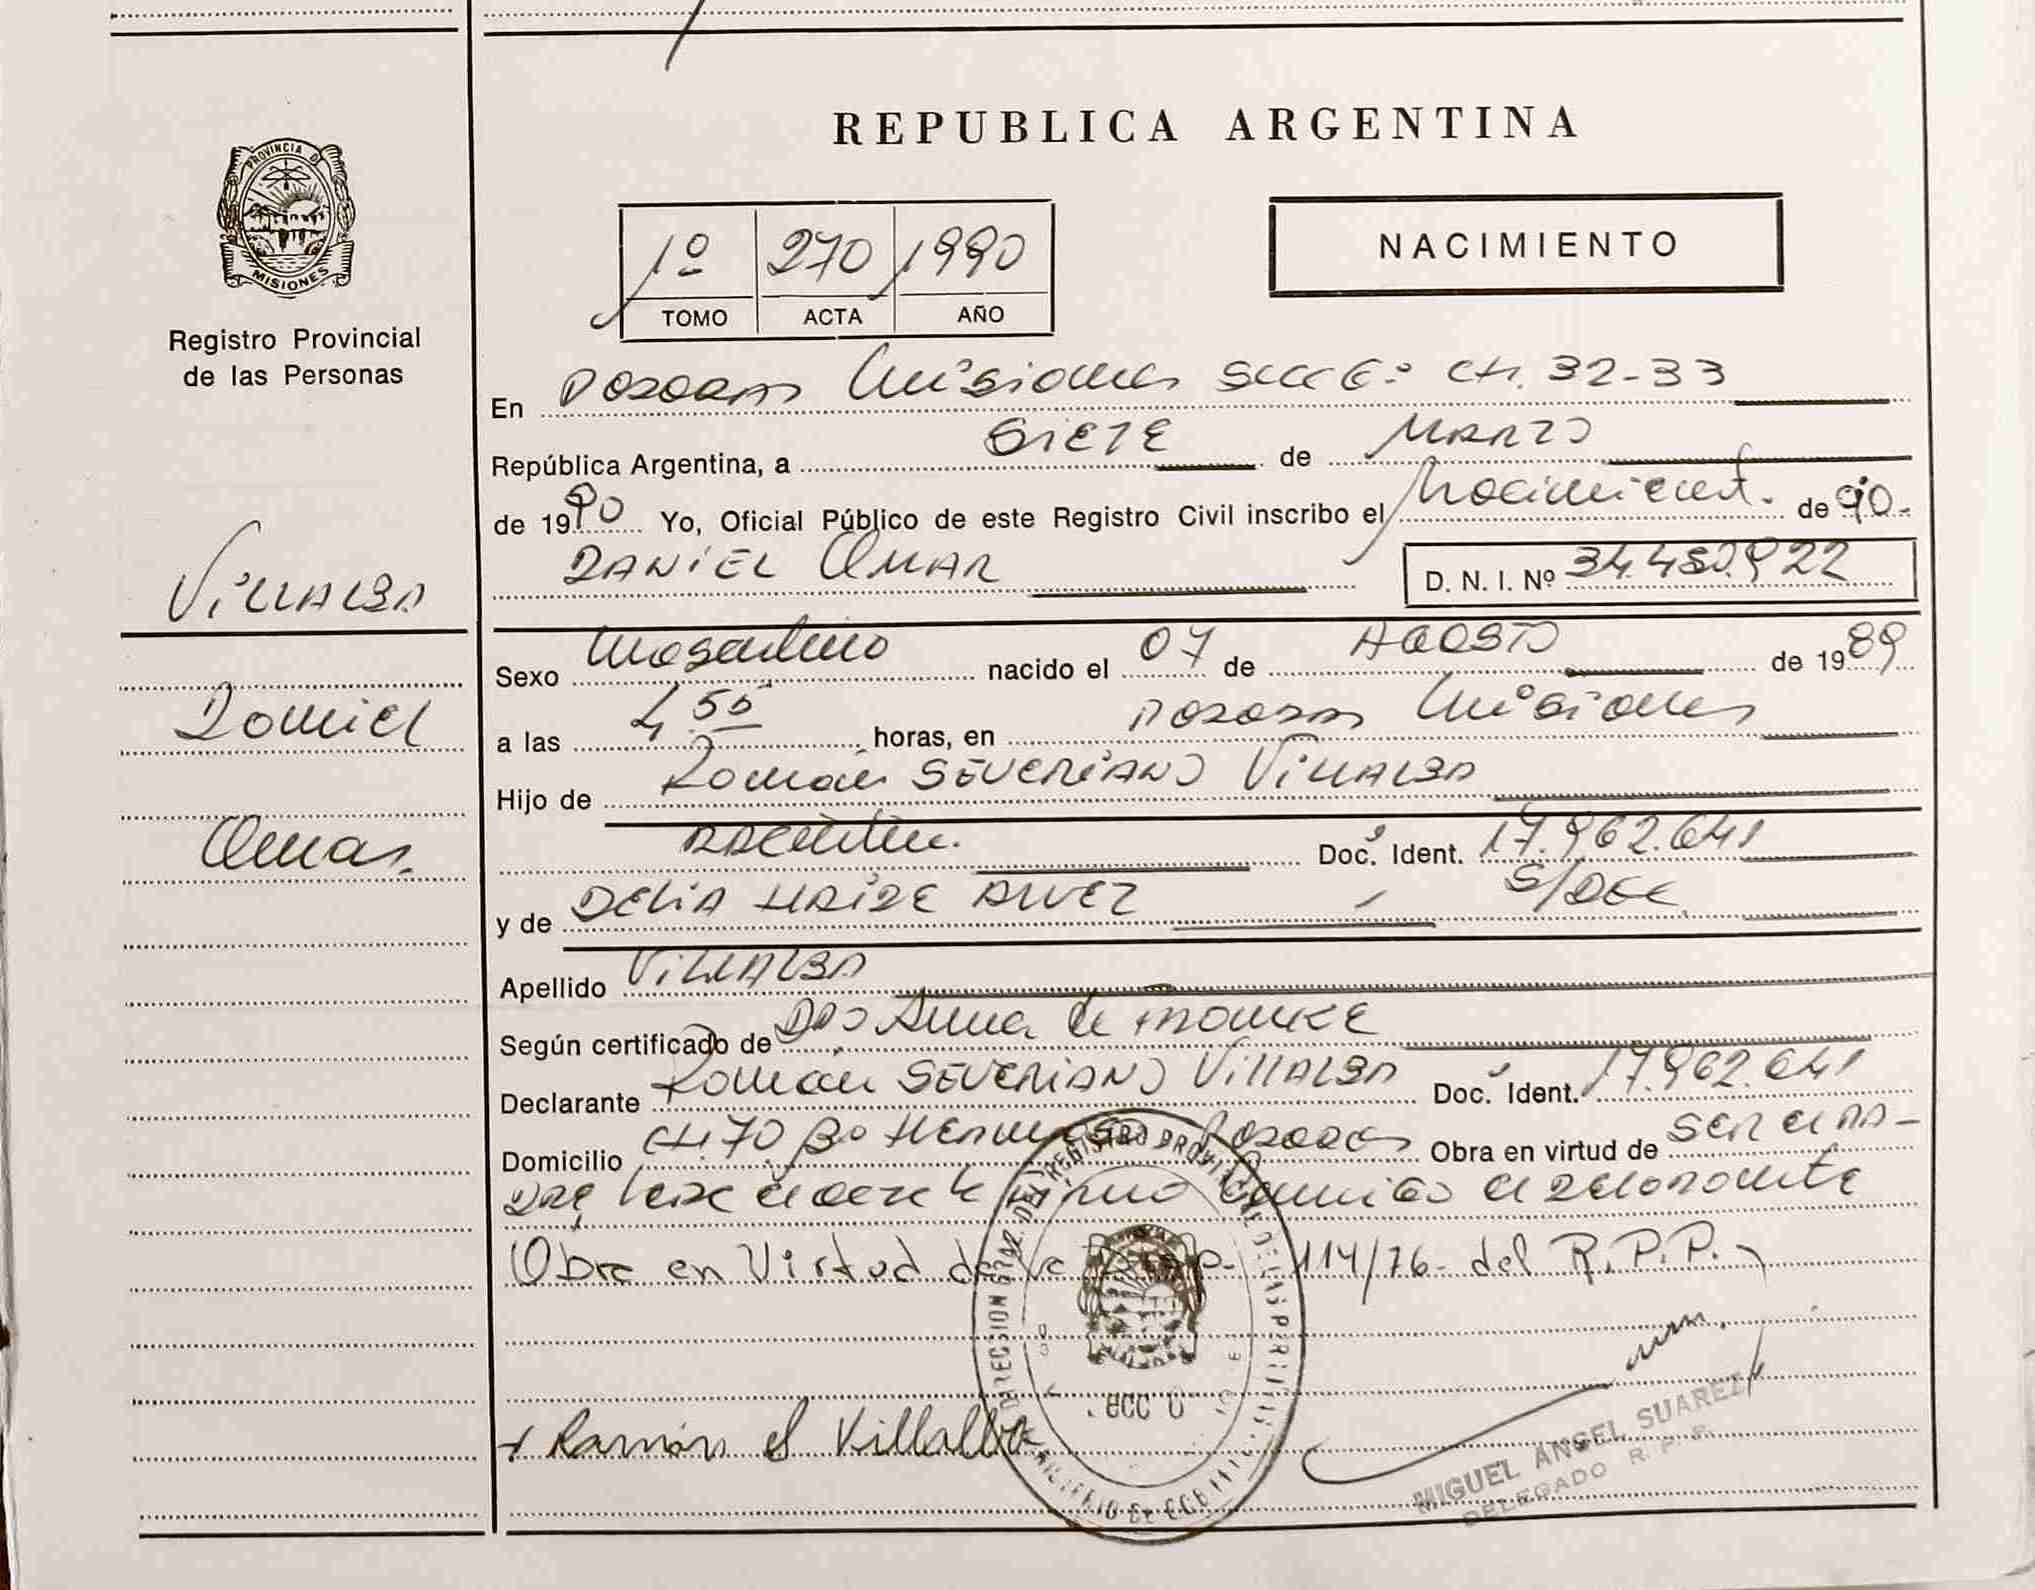 REPUBLICA ARGENTINA
PROVINCIA D
MISIONES
Registro Provincial
de las Personas
1º 270 1990
TOMO ACTA AÑO
NACIMIENTO
En Posadas Misiones Secc 6º Ch. 32-33
República Argentina, a SIETE de MARZO
de 1990 Yo, Oficial Público de este Registro Civil inscribo el Nacimient. de 90.
VILLALBA
DANIEL OMAR D. N. I. Nº 34.480.922
Sexo Masculino nacido el 07 de AGOSTO de 1989
Daniel
a las 4,55 horas, en Posadas Misiones
Hijo de SEVERIANO VILLALBA
Omar.
Doc. Ident. 17.962.641
y de DELIA ALVEZ S/DOC
Apellido VILLALBA
Según certificado de Anna de
Declarante SEVERIANO VILLALBA Doc. Ident. 17.962.641
Domicilio Ch. 70 Bº Posadas Obra en virtud de
Obra en Virtud de la Disp. 114/76 del R.P.P.
DIRECCION GRAL DEL REGISTRO PROVINCIAL DE LAS PERSONAS
Ramón S Villalba
MIGUEL ANGEL SUAREZ
DELEGADO R. P. P.